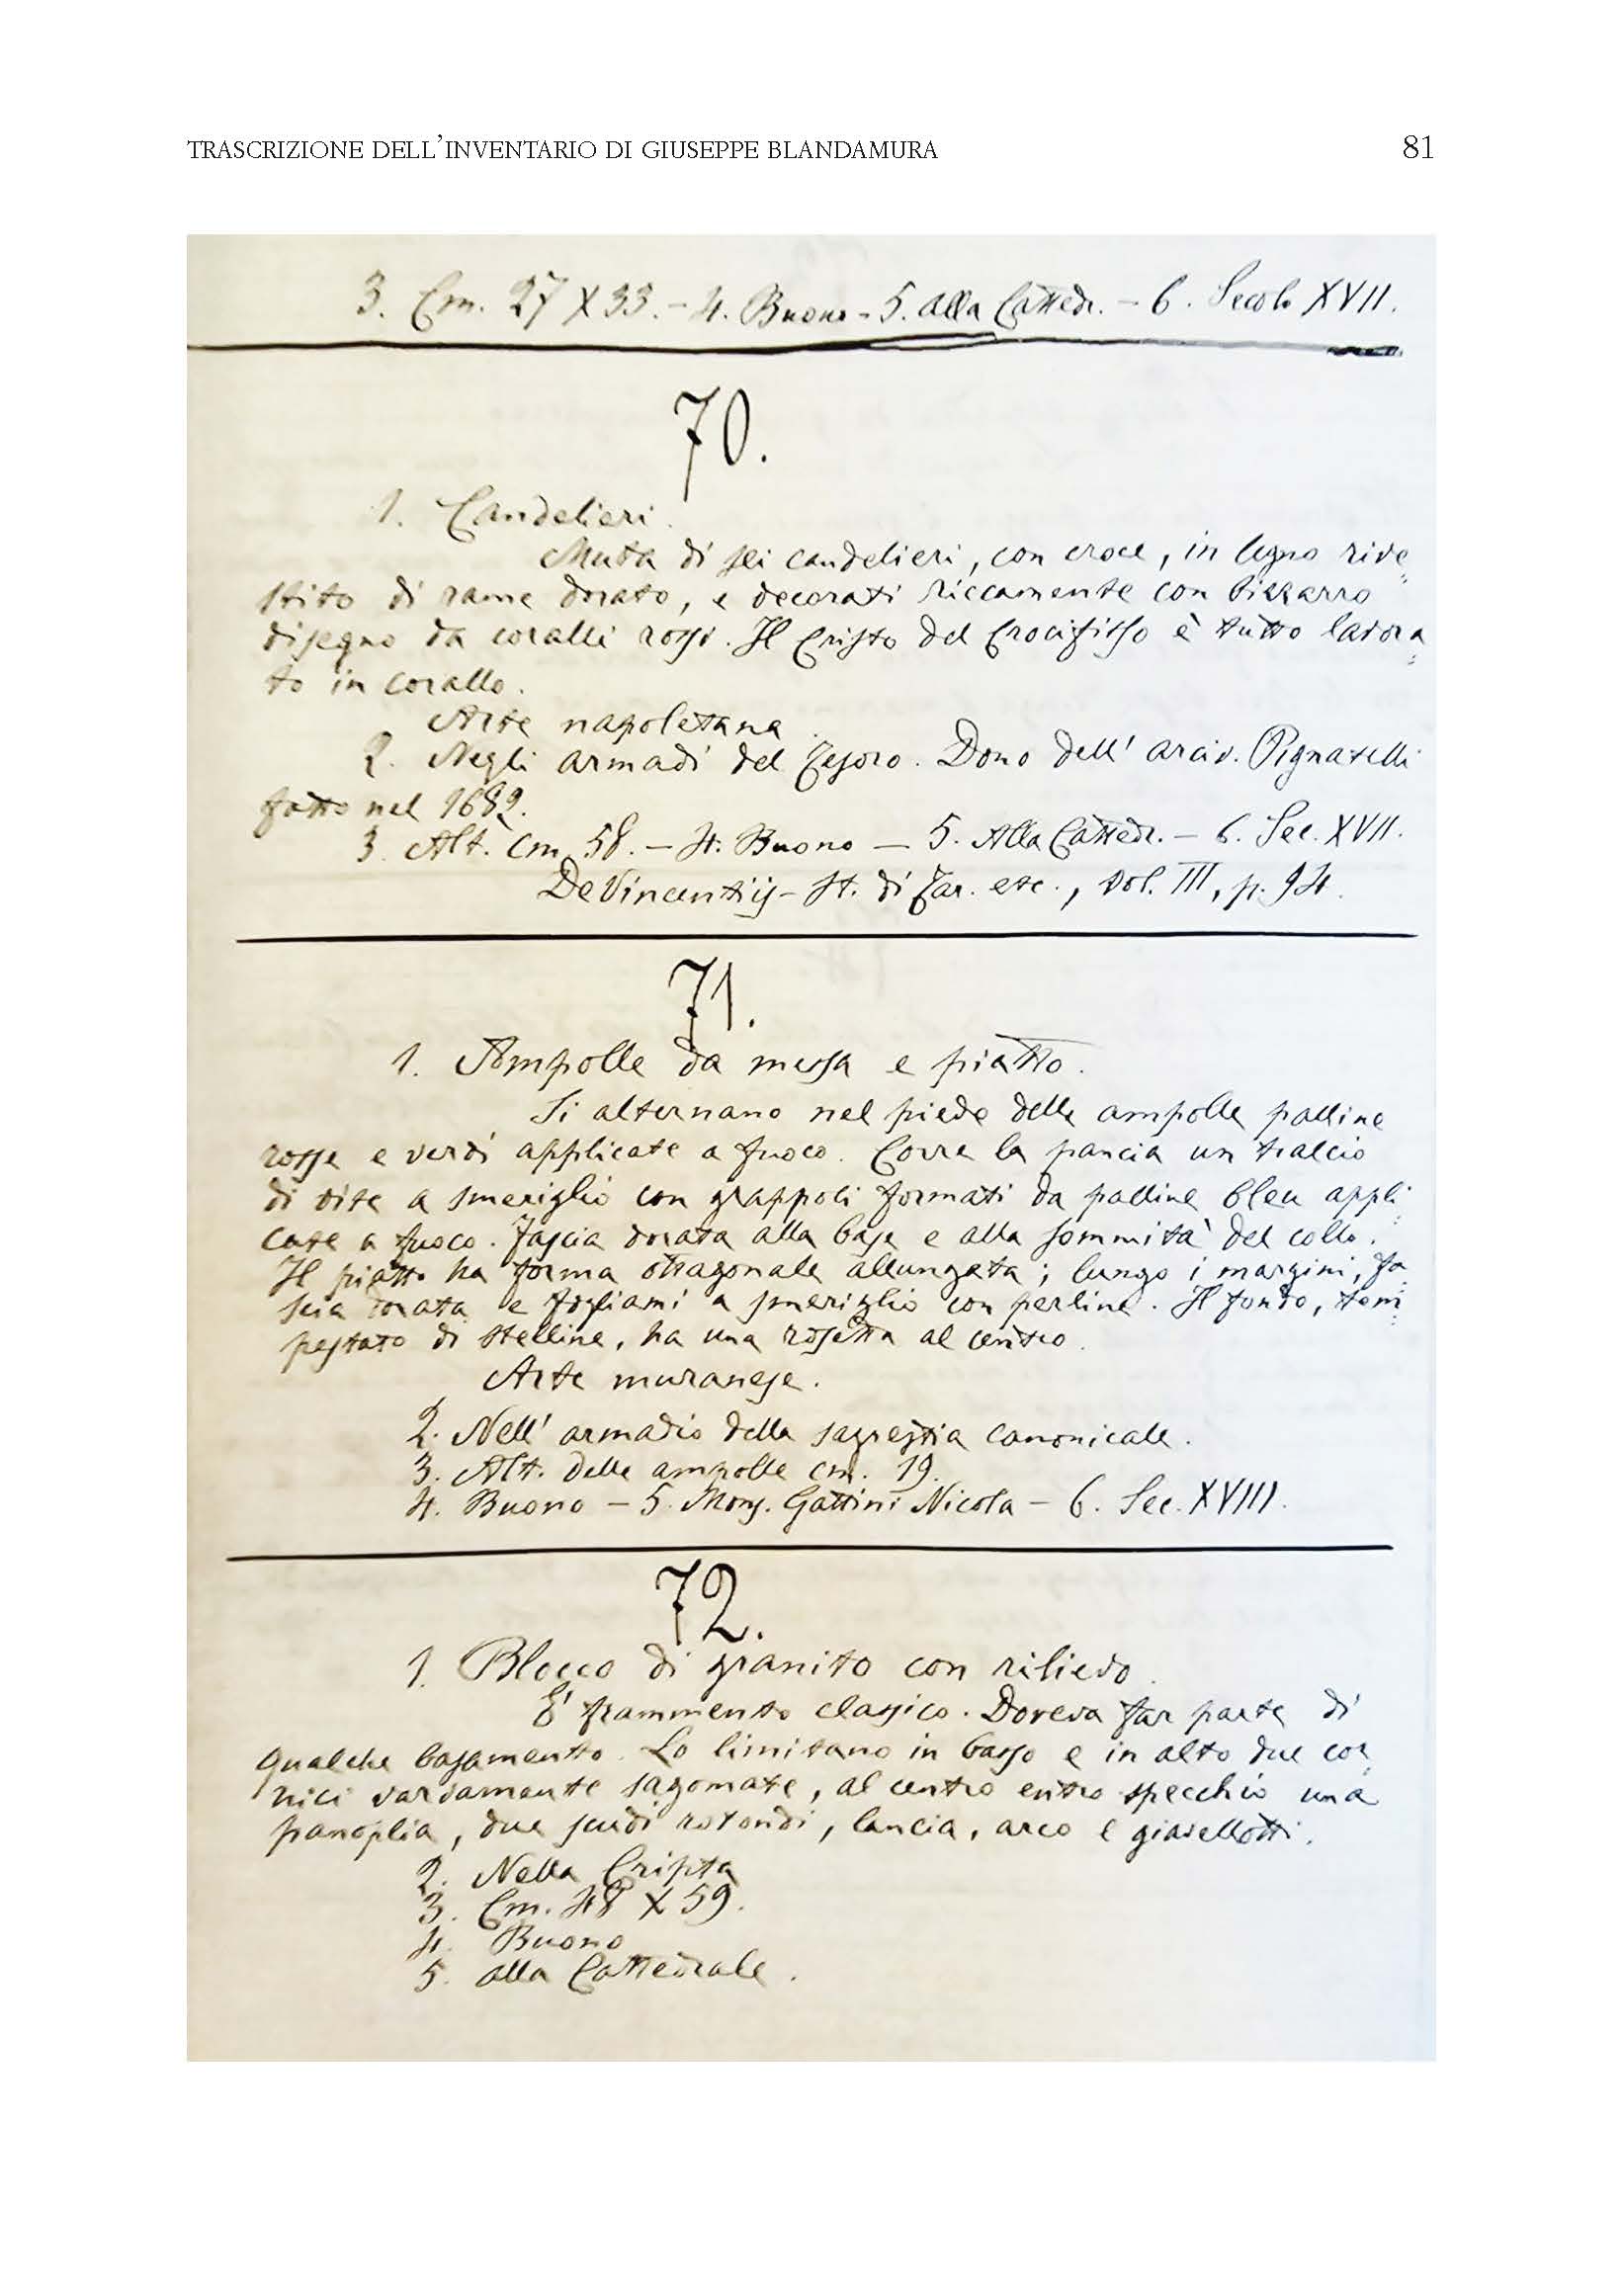 TRASCRIZIONE DELL'INVENTARIO DI GIUSEPPE BLANDAMURA 81
3. Cm. 27 X 33. – 4. Buono – 5. alla Cattedr. – 6. Secolo XVII.
70.
1. Candelieri.
Muta di sei candelieri, con croce, in legno rive
stito di rame dorato, e decorati riccamente con bizzarro
disegno da coralli rossi. Il Cristo del Crocifisso è tutto lavora
to in corallo.
Arte napoletana.
2. Negli armadi del Tesoro. Dono dell'arciv. Pignatelli
fatto nel 1682.
3. Alt. Cm. 58. – 4. Buono – 5. Alla Cattedr. – 6. Sec. XVII.
De Vincentiis – St. di Tar. etc., vol. III, p. 94.
71.
1. Ampolle da messa e piatto.
Si alternano nel piede delle ampolle palline
rosse e verdi applicate a fuoco. Corre la pancia un tralcio
di vite a smeriglio con grappoli formati da palline bleu appli
cate a fuoco. Fascia dorata alla base e alla sommità del collo.
Il piatto ha forma ottagonale allungata; lungo i margini, fa
scia dorata e fogliami a smeriglio con perline. Il fondo, tem
pestato di stelline, ha una rosetta al centro.
Arte muranese.
2. Nell'armadio della sagrestia canonicale.
3. Alt. delle ampolle cm. 19.
4. Buono – 5. Mons. Gattini Nicola – 6. Sec. XVIII.
72.
1. Blocco di granito con rilievo.
E' frammento classico. Doveva far parte di
qualche basamento. Lo limitano in basso e in alto due cor
nici variamente sagomate, al centro entro specchio una
panoplia, due scudi rotondi, lancia, arco e giavellotti.
2. Nella Cripta
3. Cm. 48 X 59.
4. Buono
5. alla Cattedrale.